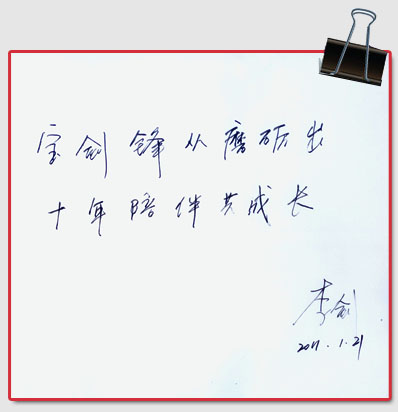 宝剑锋从磨砺出
十年陪伴共成长
李剑
2011.1.21